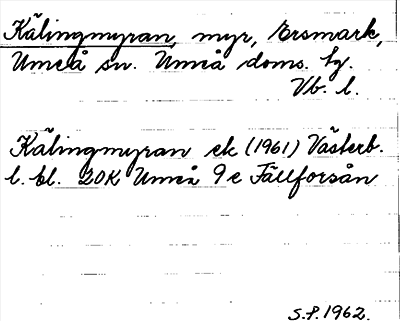 Kälingmyran, myr, Ersmark,
Umeå sn. Umeå doms. hg.
Vb. l.
Kälingmyran ek (1961) Västerb.
l. bl. 20K Umeå 9e Fällforsån
S.P. 1962.